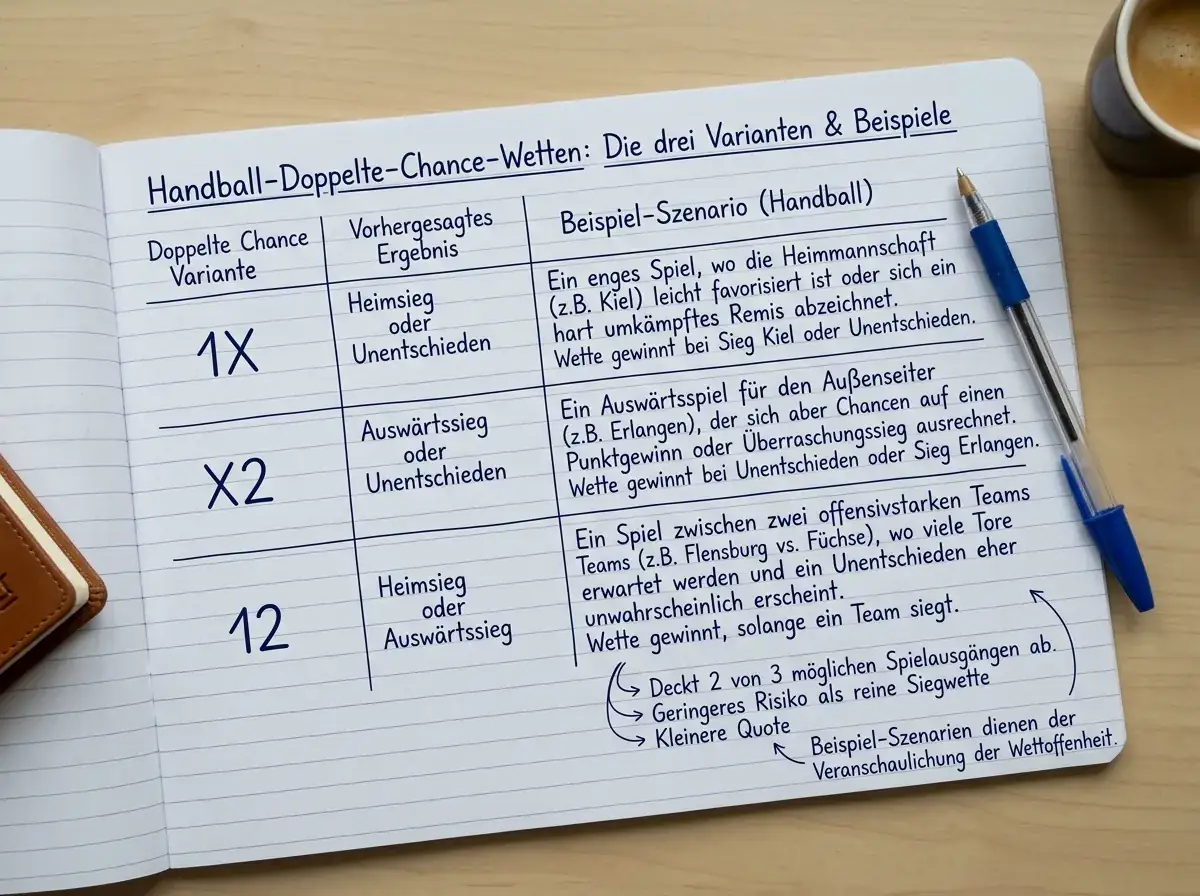 Handball-Doppelte-Chance-Wetten: Die drei Varianten & Beispiele
Doppelte Chance
Variante
Vorhergesagtes
Ergebnis
Beispiel-Szenario (Handball)
1X
Heimsieg
oder
Unentschieden
Ein enges Spiel, wo die Heimmannschaft
(z.B. Kiel) leicht favorisiert ist oder sich ein
hart umkämpftes Remis abzeichnet.
Wette gewinnt bei Sieg Kiel oder Unentschieden.
X2
Auswärtssieg
oder
Unentschieden
Ein Auswärtsspiel für den Außenseiter
(z.B. Erlangen), der sich aber Chancen auf einen
Punktgewinn oder Überraschungssieg ausrechnet.
Wette gewinnt bei Unentschieden oder Sieg Erlangen.
12
Heimsieg
oder
Auswärtssieg
Ein Spiel zwischen zwei offensivstarken Teams
Teams (z.B. Flensburg vs. Füchse), wo viele Tore
erwartet werden und ein Unentschieden eher
unwahrscheinlich erscheint.
Wette gewinnt, solange ein Team siegt.
Deckt 2 von 3 möglichen Spielausgängen ab.
Geringeres Risiko als reine Siegwette
Kleinere Quote
Beispiel-Szenarien dienen der
Veranschaulichung der Wettoffenheit.